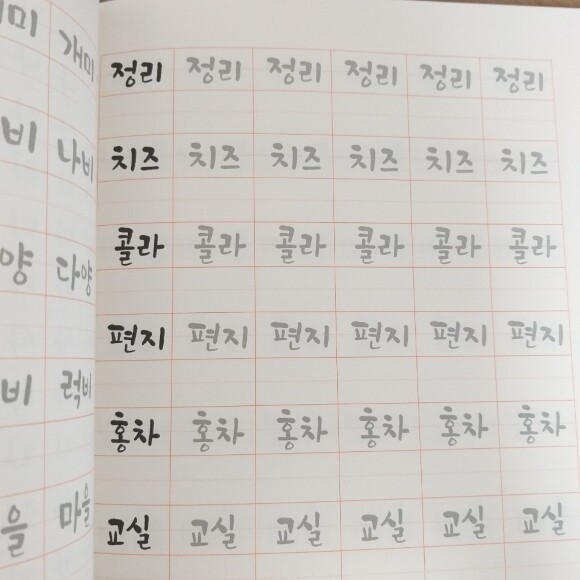 개미
정리 정리 정리 정리 정리 정리
나비
치즈 치즈 치즈 치즈 치즈 치즈
다양
콜라 콜라 콜라 콜라 콜라 콜라
편지 편지 편지 편지 편지 편지
럭비
홍차 홍차 홍차 홍차 홍차 홍차
마을
교실 교실 교실 교실 교실 교실